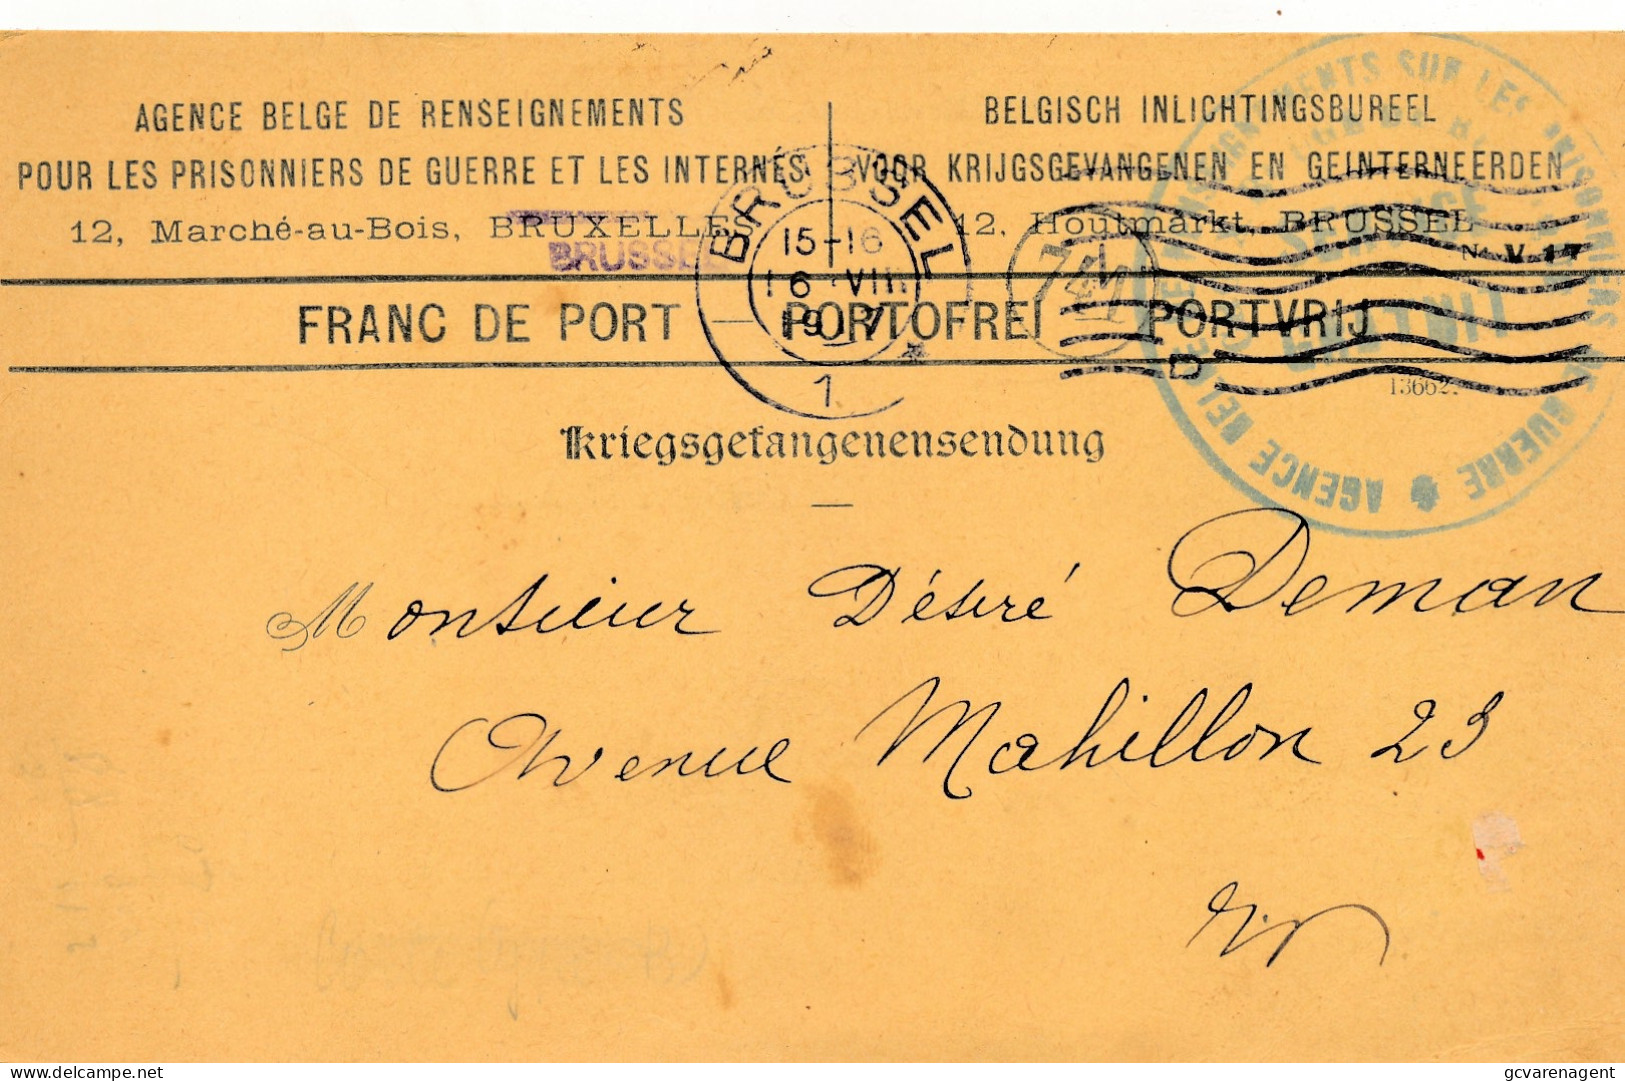 AGENCE BELGE DE RENSEIGNEMENTS
POUR LES PRISONNIERS DE GUERRE ET LES INTERNÉS
12, Marché-au-Bois, BRUXELLES
BELGISCH INLICHTINGSBUREEL
VOOR KRIJGSGEVANGENEN EN GEINTERNEERDEN
12, Houtmarkt, BRUSSEL
BRUSSEL
BRUSSEL
15-16
1
N. V. 17
FRANC DE PORT — PORTOFREI — PORTVRIJ
13662.
SUR LES PRISONNIERS DE GUERRE
AGENCE BELGE
Kriegsgefangenensendung
Monsieur Désiré Deman
Avenue Mahillon 23
delcampe.net
gcvarenagent